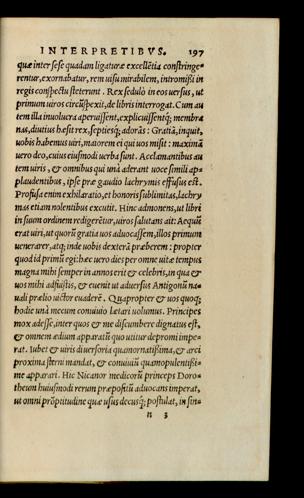 INTERPRETIBVS. 197
quæ inter sese quadam ligaturæ excellẽtia constringe=
rentur, exornabatur, rem uisu mirabilem, intromissi in
regis conspectu steterunt. Rex sedulò in eos uersus, ut
primum uiros circũspexit, de libris interrogat. Cum au
tem illa inuolucra aperuissent, explicuissentq; membra
nas, diutius hæsit rex, septiesq; adorãs: Gratiã, inquit,
uobis habemus uiri, maiorem ei qui uos misit: maximã
uero deo, cuius eiusmodi uerba sunt. Acclamantibus au
tem uiris, & omnibus qui unà aderant uoce simili ap=
plaudentibus, ipse præ gaudio lachrymis effusus est.
Profusa enim exhilaratio, et honoris sublimitas, lachry
mas etiam nolentibus excutit. Hinc admonens, ut libri
in suum ordinem redigerẽtur, uiros salutans ait: Aequũ
erat uiri, ut quorũ gratia uos aduocassem, illos primum
uenerarer, atq; inde uobis dexterã præberem: propter
quod id primũ egi: hæc uero dies per omne uitæ tempus
magna mihi semper in annos erit & celebris, in qua &
uos mihi adfuistis, & euenit ut aduersus Antigonũ na=
uali prælio uictor euaderẽ. Quapropter & uos quoq;
hodie unà mecum conuiuio lætari uolumus. Principes
mox adesse, inter quos & me discumbere dignatus est,
& omnem ædium apparatũ quo utitur depromi impe=
rat. Iubet & uiris diuersoria quàm ornatissima, & arci
proxima sterni mandat, & conuiuiũ quàm opulentissi=
me apparari. Hic Nicanor medicorũ princeps Doro=
theum huiusmodi rerum præpositũ aduocans imperat,
ut omni prõptitudine quæ usus decusq; postulat, in sin=
n 3